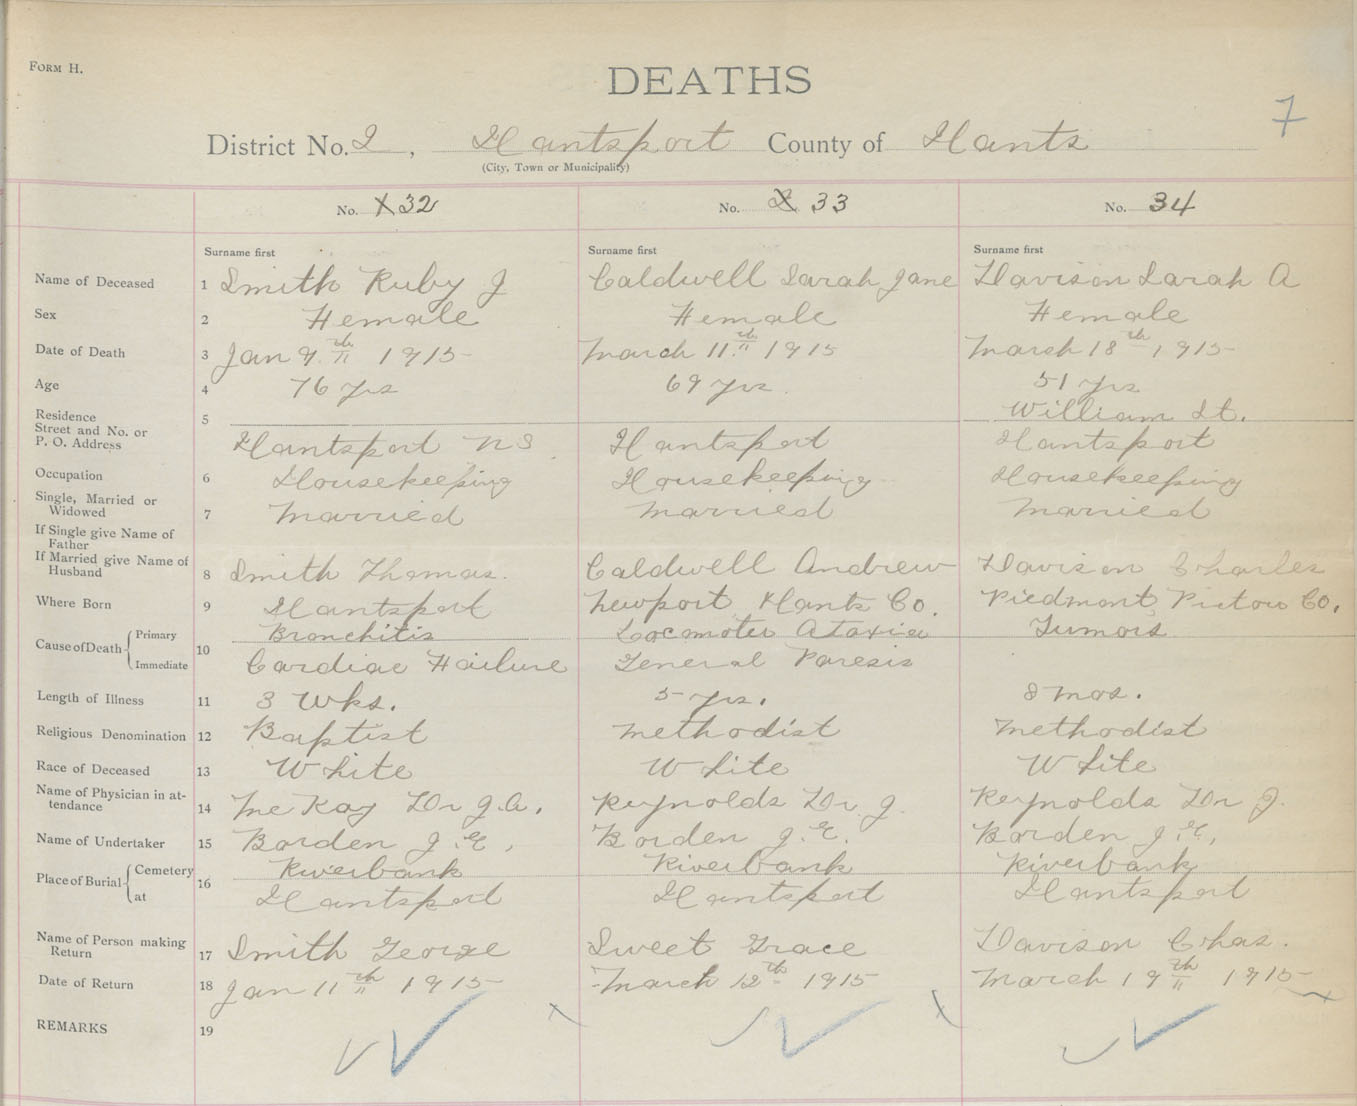 FORM H.
DEATHS
7
District No. 2, Hantsport County of Hants
(City, Town or Municipality)
No. 1 32 No. 2 33 No. 34
Surname first Surname first Surname first
Name of Deceased 1 Smith Ruby J Caldwell Sarah Jane Davison Sarah A
Sex 2 Female Female Female
Date of Death 3 Jan 9th 1915 March 11th 1915 March 18th 1915
Age 4 76 yrs 69 yrs 51 yrs
Residence 5 William St.
Street and No. or
P. O. Address Hantsport NS Hantsport Hantsport
Occupation 6 Housekeeping Housekeeping Housekeeping
Single, Married or
Widowed 7 Married Married Married
If Single give Name of
Father
If Married give Name of
Husband 8 Smith Thomas. Caldwell Andrew Davison Charles
Where Born 9 Hantsport Newport Hants Co. Piedmont Pictou Co.
Cause of Death Primary 10 Bronchitis Locomoter Ataxia Tumors
Immediate Cardiac Failure General Paresis
Length of Illness 11 3 Wks. 5 yrs. 8 mos.
Religious Denomination 12 Baptist Methodist Methodist
Race of Deceased 13 White White White
Name of Physician in at-
tendance 14 McKay Dr J.A. Reynolds Dr. J. Reynolds Dr J.
Name of Undertaker 15 Borden J.E. Borden J.E. Borden J.E.
Place of Burial Cemetery 16 Riverbank Riverbank Riverbank
at Hantsport Hantsport Hantsport
Name of Person making
Return 17 Smith George Sweet Grace Davison Chas.
Date of Return 18 Jan 11th 1915 March 12th 1915 March 19th 1915
REMARKS 19